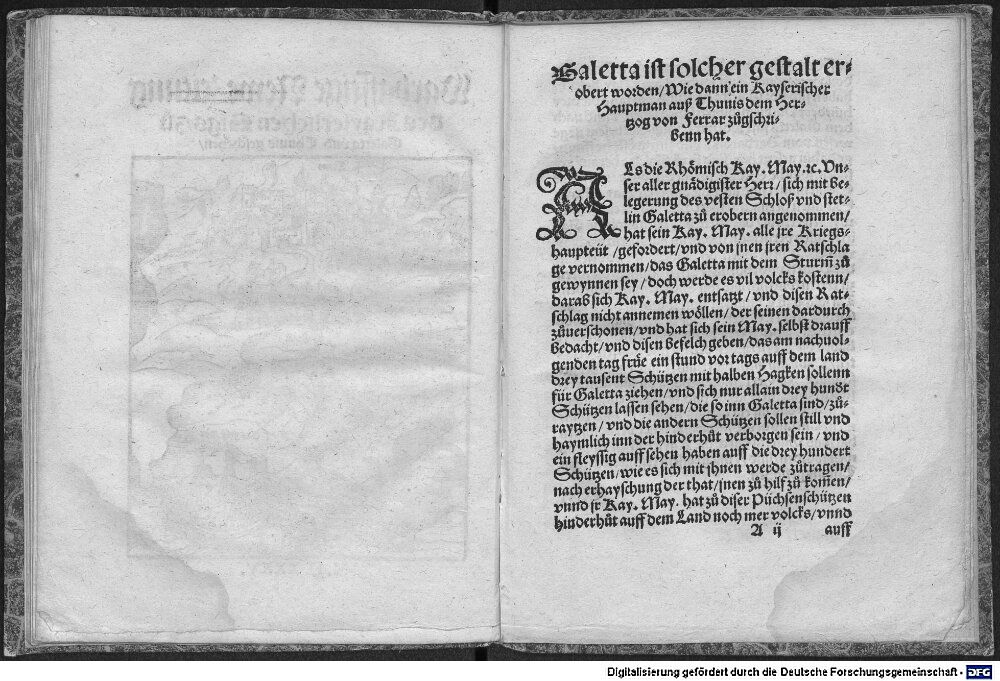 Galetta ist solcher gestalt er-
obert worden/Wie dann ein Kayserischer
Hauptman auß Thunis dem Her-
tzog von Ferrar zůgschri-
benn hat.
ALs die Rhömisch Kay. May. ꝛc. Vn-
ser aller gnädigister Herr/sich mit be-
legerung des vesten Schloß vnd stet-
lin Galetta zů erobern angenommen/
hat sein Kay. May. alle jre Kriegs-
haupteüt/gefordert/vnd von jnen jren Ratschla
ge vernommen/das Galetta mit dem Sturm̃ zů
gewynnen sey/doch werde es vil volcks kostenn/
darab sich Kay. May. entsatzt/vnd disen Rat-
schlag nicht annemen wöllen/der seinen dardurch
zůuerschonen/vnd hat sich sein May. selbst drauff
bedacht/vnd disen befelch geben/das am nachuol-
genden tag frůe ein stund vor tags auff dem land
drey tausent Schützen mit halben Hagken sollenn
für Galetta ziehen/vnd sich nur allain drey hundt
Schützen lassen sehen/die so inn Galetta sind/zů-
raytzen/vnd die andern Schützen sollen still vnd
haymlich inn der hinderhůt verborgen sein/vnd
ein fleyssig auff sehen haben auff die drey hundert
Schützen/wie es sich mit jhnen werde zůtragen/
nach erhayschung der that/jnen zů hilf zů kom̃en/
vnnd jr Kay. May. hat zů diser Püchsenschützen
hinderhůt auff dem Land noch mer volcks/vnnd
A ij auff
Digitalisierung gefördert durch die Deutsche Forschungsgemeinschaft - DFG